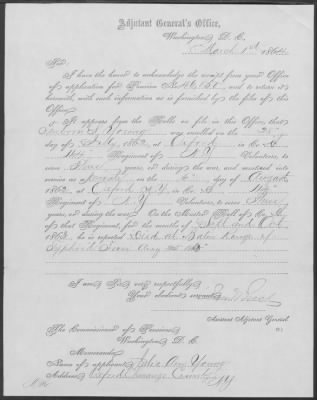 Adjutant General's Office,
Washington, D. C.
March 1st, 1864
Sir:
I have the honor to acknowledge the receipt from your Office
of application for Pension No. and to return it
herewith, with such information as is furnished by the files of this
Office.
It appears from the Rolls on file in this Office, that
Young was enrolled on the
day of July, 1862, at Oxford in Co.
Regiment of N.Y. Volunteers, to
serve Three years, or during the war, and mustered into
service as a on the day of August
1862, at Oxford N.Y, in Co.
Regiment of N.Y Volunteers, to serve Three
years, or during the war. On the Muster Roll of Co.
of that Regiment, for the months of Sept and Oct
1863, he is reported Died at Baton Rouge of
Typhoid Fever Aug
I am Sir, very respectfully,
Your obedient servant,
Assistant Adjutant General
The Commissioner of Pensions,
Washington, D. C.
Memoranda:
Name of applicant, Ann Young
Address, Oxford Chenango County
NY